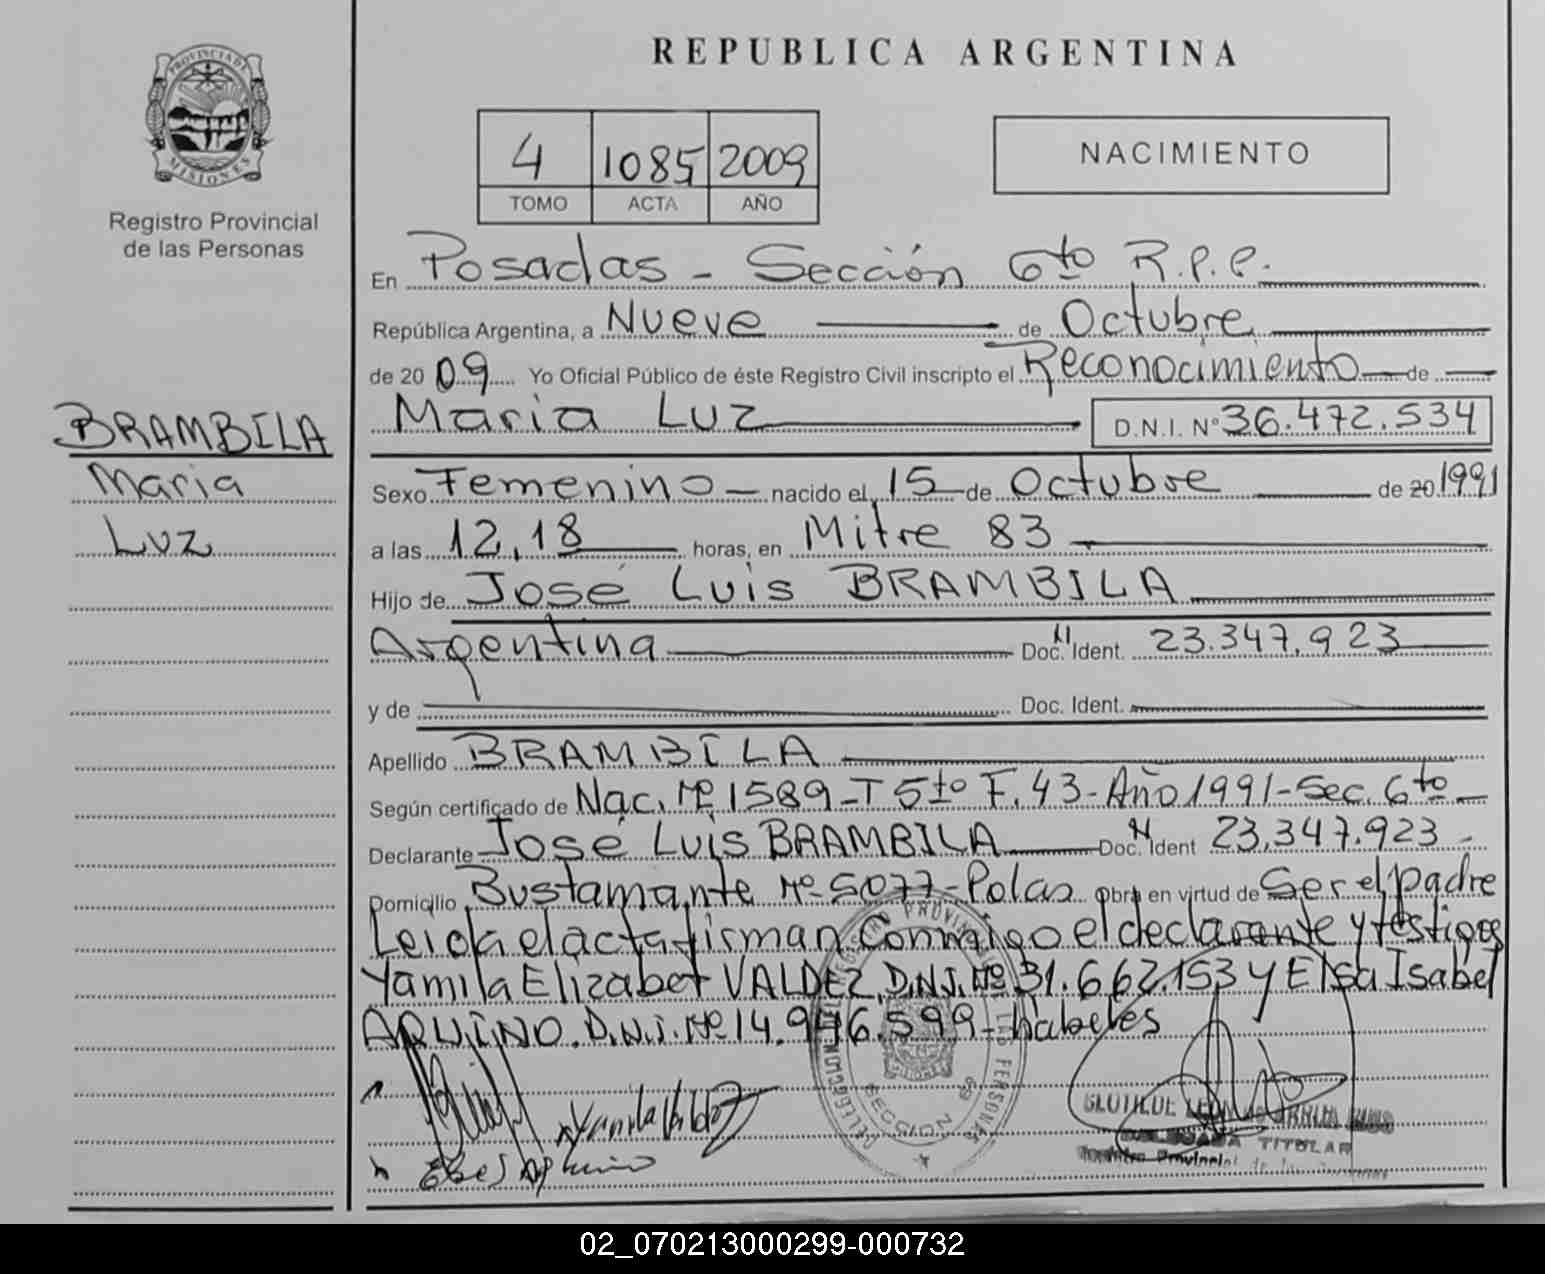 REPUBLICA ARGENTINA
PROVINCIA DE
MISIONES
Registro Provincial
de las Personas
4 1085 2009
TOMO ACTA AÑO
NACIMIENTO
En Posadas - Sección 6to R.P.P.
República Argentina, a Nueve de Octubre
de 2009 Yo Oficial Público de éste Registro Civil inscripto el Reconocimiento de
Maria Luz D.N.I. N° 36.472.534
BRAMBILA
Maria
Luz
Sexo Femenino nacido el 15 de Octubre de 20 1991
a las 12,18 horas, en Mitre 83
Hijo de José Luis BRAMBILA
Argentina Doc. N Ident. 23.347.923
y de Doc. Ident.
Apellido BRAMBILA
Según certificado de Nac. Nº 1589-T 5to F. 43-Año 1991-Sec. 6to
Declarante José Luis BRAMBILA Doc. N Ident 23.347.923
Domicilio Bustamante Nº 5077-Pdas Obra en virtud de Ser el padre
Leida el acta firman conmigo el declarante y testigos
Yamila Elizabet VALDEZ D.N.I. Nº 31.662.153 y Elsa Isabel
AQUINO. D.N.I. Nº 14.946.599- habeles
REGISTRO PROVINCIAL DE LAS PERSONAS
DELEGACION
SECCION 6º
Yamila Valdez
TITULAR
Registro Provincial de las Personas
02_070213000299-000732